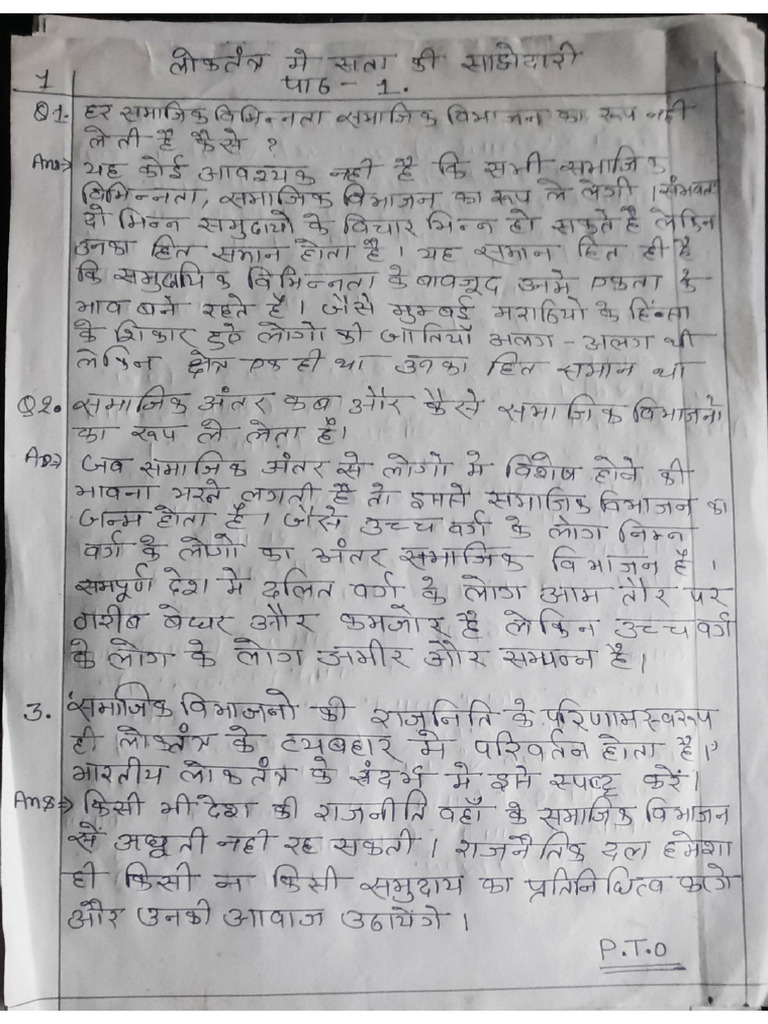 लोकतंत्र मे सता की साझेदारी
1 पाठ - 1.
Q1. हर समाजिक विभिन्नता समाजिक विभाजन का रूप नही
लेती है कैसे ?
Ans⇒ यह कोई आवश्यक नही है कि सभी समाजिक
विभिन्नता, समाजिक विभाजन का रूप ले लेगी । संभवतः
दो भिन्न समुदायो के विचार भिन्न हो सकते है लेकिन
उनका हित समान होता है । यह समान हित ही है
कि समुदायिक विभिन्नता के बावजूद उनमे एकता के
भाव बाने रहते है । जैसे मुम्बई मराठियो के हिंन्सा
के शिकार हुऐ लोगो की जातियाँ अलग - अलग थी
लेकिन क्षेत्र एक ही था उनका हित समान था
Q2. समाजिक अंतर कब और कैसे समाजिक विभाजनो
का रूप ले लेता है।
AD⇒ जब समाजिक अंतर से लोगो मे विशेष होने की
भावना भरने लगती है तो इससे समाजिक विभाजन का
जन्म होता है । जैसे उच्च वर्ग के लोग निम्न
वर्ग के लोगो का अंतर समाजिक विभाजन है ।
समपूर्ण देश मे दलित वर्ग के लोग आम तौर पर
गरीब बेघर और कमजोर है लेकिन उच्च वर्ग
के लोग के लोग अमीर और सम्पन्न है।
3. 'समाजिक विभाजनो की राजनिति के परिणाम स्वरूप
ही लोकतंत्र के व्यबहार मे परिवर्तन होता है।'
भारतीय लोकतंत्र के संदर्भ मे इसे स्पष्ट करें।
Ans⇒ किसी भी देश की राजनीति वहाँ के समाजिक विभाजन
सें अछूती नही रह सकती । राजनैतिक दल हमेशा
ही किसी न किसी समुदाय का प्रतिनिधित्व करेगे
और उनकी आवाज उठायेगे ।
P.T.O